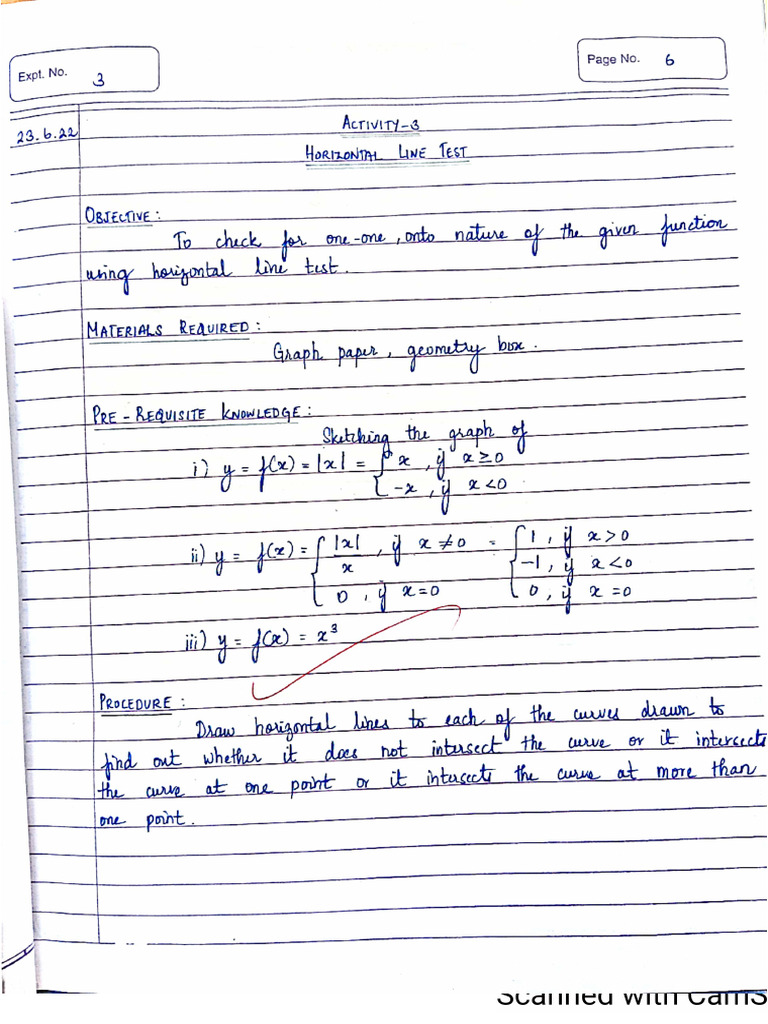 Expt. No. 3
Page No. 6
23.6.22
ACTIVITY-3
HORIZONTAL LINE TEST
OBJECTIVE:
To check for one-one, onto nature of the given function
using horizontal line test.
MATERIALS REQUIRED:
Graph paper, geometry box.
PRE-REQUISITE KNOWLEDGE:
Sketching the graph of
i) y = f(x) = |x| = { x, if x ≥ 0
{ -x, if x < 0
ii) y = f(x) = { |x|/x, if x ≠ 0 = { 1, if x > 0
-1, if x < 0
0, if x = 0 0, if x = 0
iii) y = f(x) = x³
PROCEDURE:
Draw horizontal lines to each of the curves drawn to
find out whether it does not intersect the curve or it intersects
the curve at one point or it intersects the curve at more than
one point.
Scanned with CamS